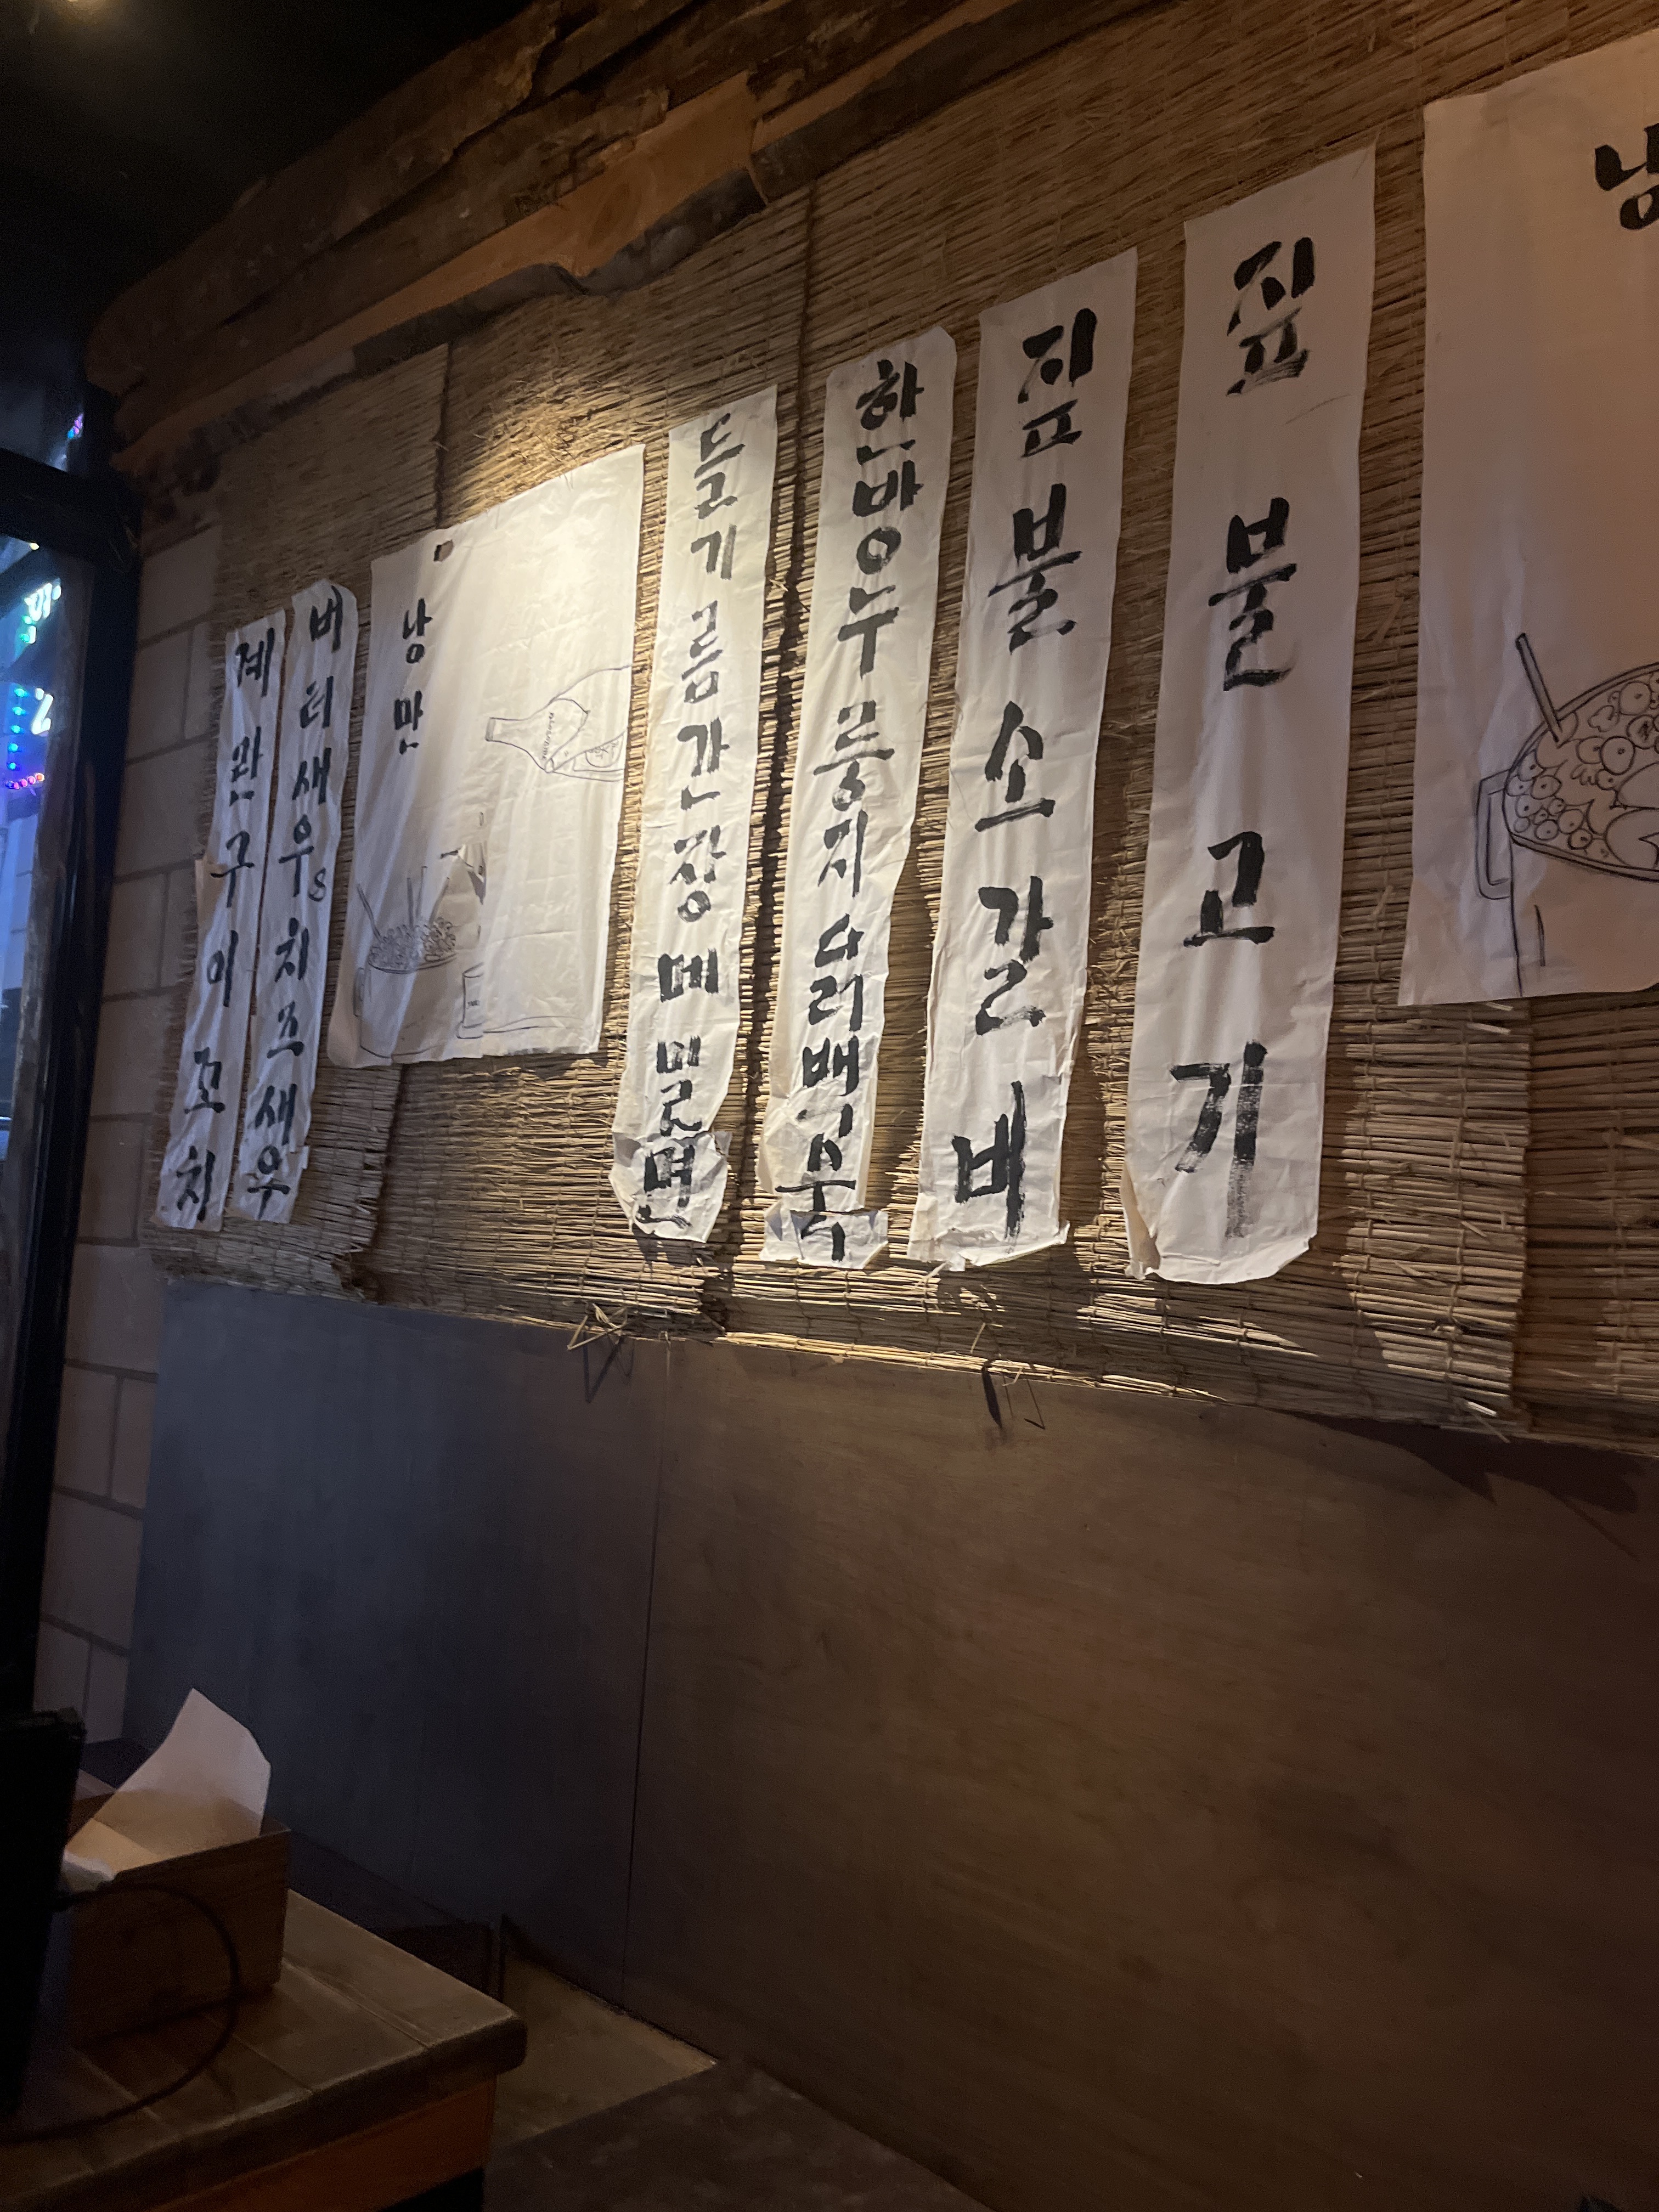 계란구이꼬치
버터새우s치즈새우
낭만
들기름간장메밀면
한방누룽지닭다리백숙
짚불소갈비
짚불고기
낭